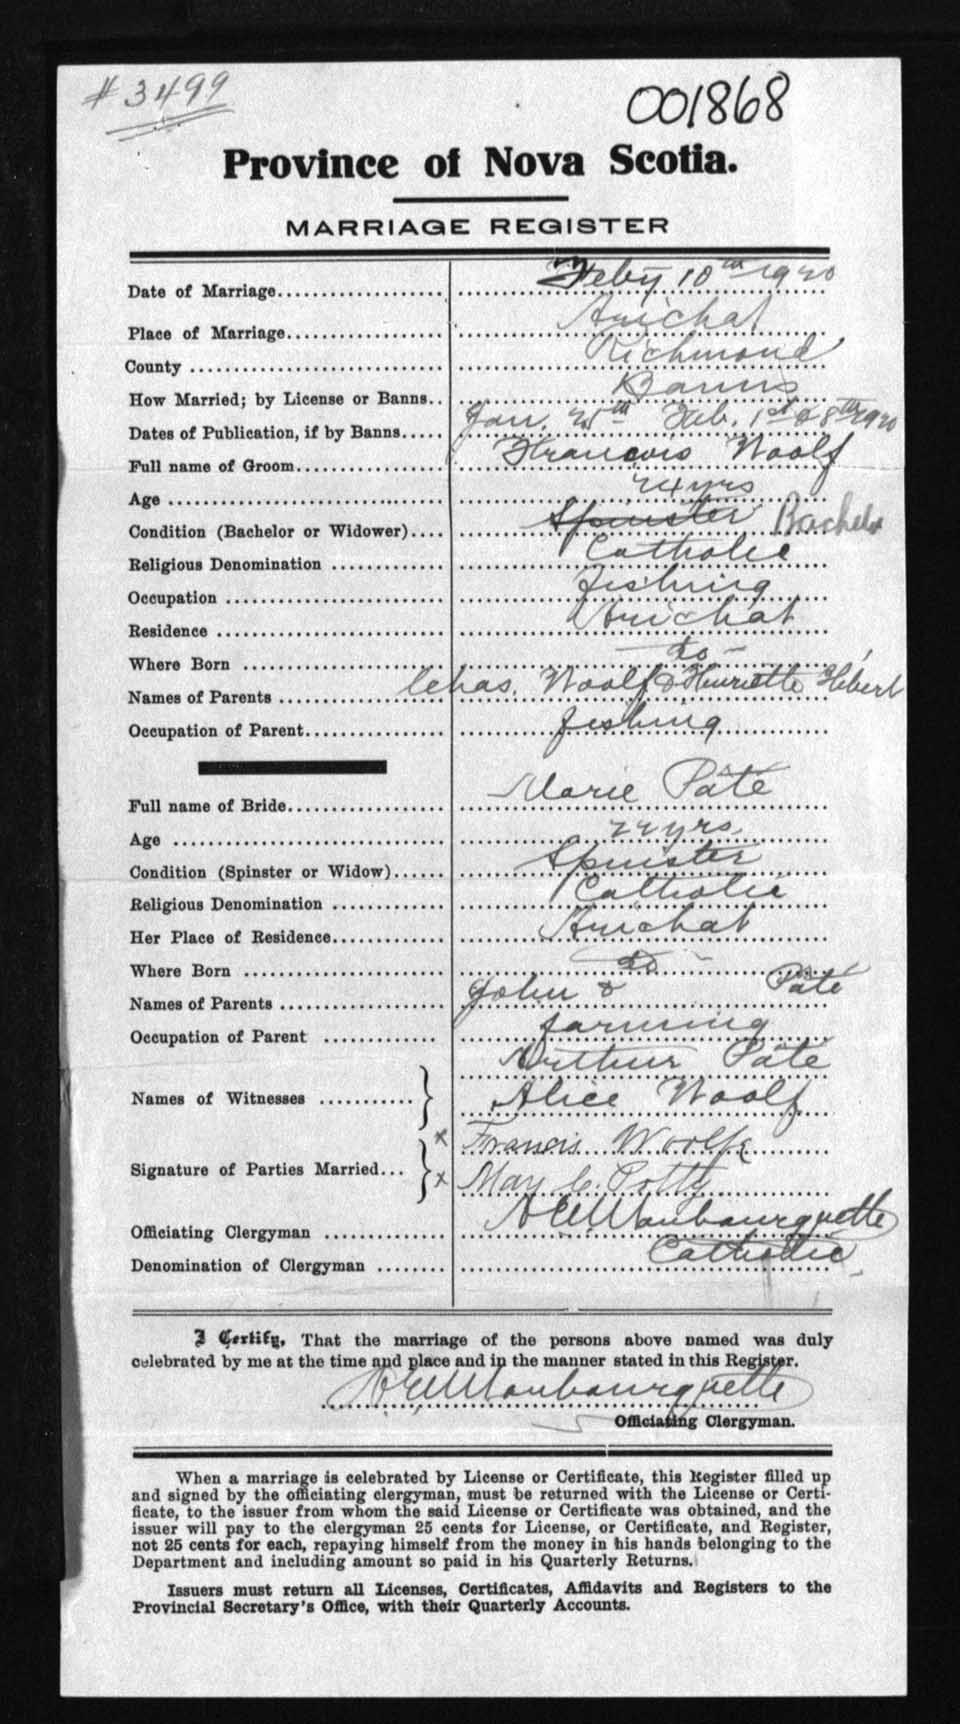 # 3499
001868
Province of Nova Scotia.
MARRIAGE REGISTER
Date of Marriage.................... Feby 10th 1920
Place of Marriage................... Arichat
County ............................. Richmond
How Married; by License or Banns.. Banns
Dates of Publication, if by Banns..... Jan. 25th Feb. 1st & 8th 1920
Full name of Groom.................. Francois Woolf
Age ................................ 24 yrs
Condition (Bachelor or Widower).... Spinster Bachelor
Religious Denomination .............. Catholic
Occupation .......................... fishing
Residence ........................... Arichat
Where Born ......................... do
Names of Parents .................... Chas. Woolf & Henriette Hébert
Occupation of Parent................. fishing
Full name of Bride................... Marie Pâté
Age ................................. yrs.
Condition (Spinster or Widow)...... Spinster
Religious Denomination .............. Catholic
Her Place of Residence.............. Arichat
Where Born ......................... do
Names of Parents .................... John & Pâté
Occupation of Parent .............. farming
Arthur Pâté
Names of Witnesses ........... } Alice Woolf
x Francis Woolfe
Signature of Parties Married... } x May C. Potty
Officiating Clergyman .............. A E Monbourquette
Denomination of Clergyman ........ Catholic
I Certify, That the marriage of the persons above named was duly
celebrated by me at the time and place and in the manner stated in this Register.
A E Monbourquette
Officiating Clergyman.
When a marriage is celebrated by License or Certificate, this Register filled up
and signed by the officiating clergyman, must be returned with the License or Certi-
ficate, to the issuer from whom the said License or Certificate was obtained, and the
issuer will pay to the clergyman 25 cents for License, or Certificate, and Register,
not 25 cents for each, repaying himself from the money in his hands belonging to the
Department and including amount so paid in his Quarterly Returns.
Issuers must return all Licenses, Certificates, Affidavits and Registers to the
Provincial Secretary's Office, with their Quarterly Accounts.